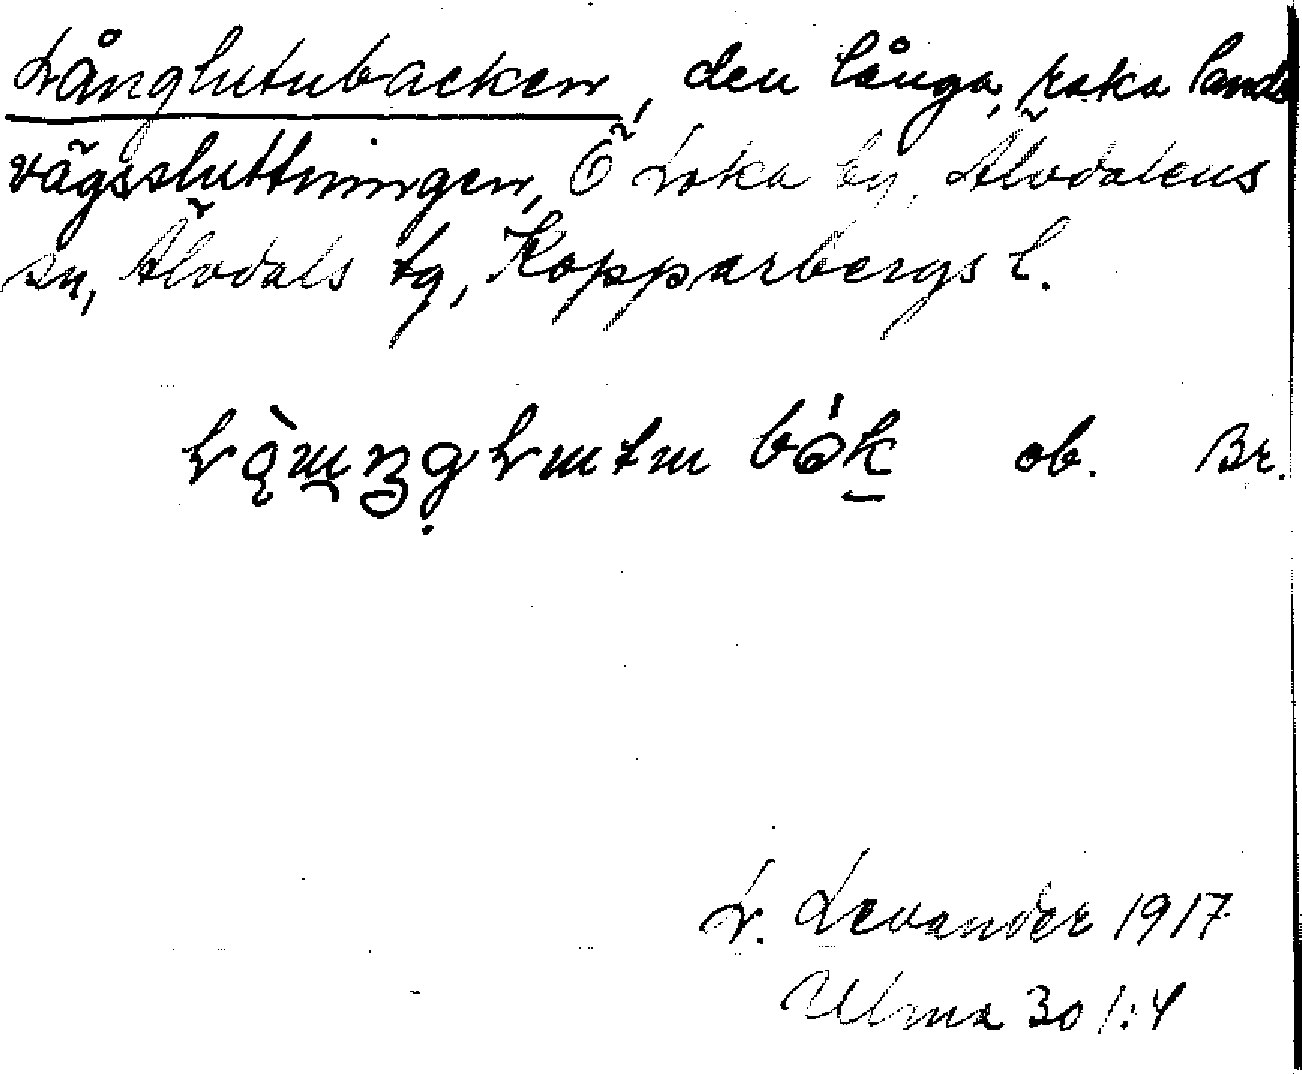 Långlutubacken, den långa, raka lands
vägssluttningen, Ö Loka by, Älvdalens
sn, Älvdals tg, Kopparbergs l.
ob. Br.
L. Levander 1917
Ulma 301:4